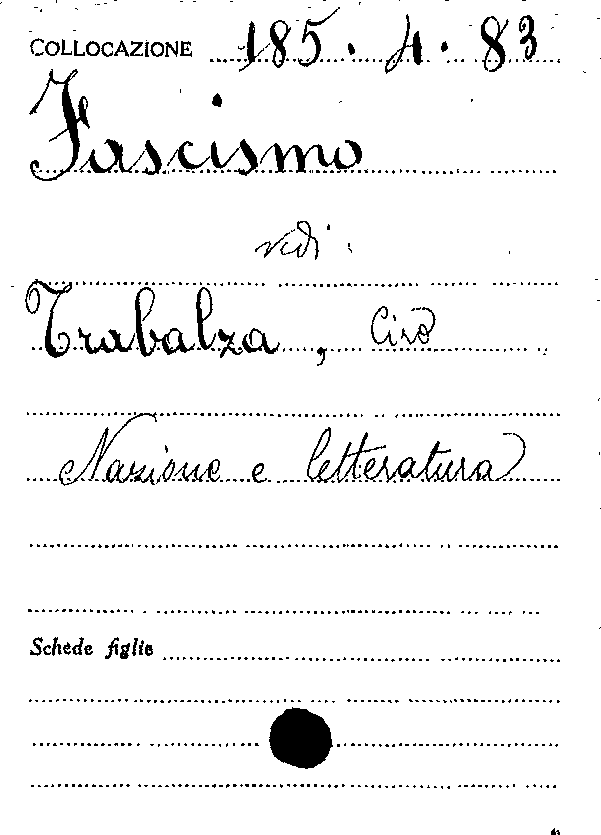 COLLOCAZIONE 185.4.83
Fascismo
vedi:
Trabalza, Ciro
Nazione e letteratura
Schede figlie